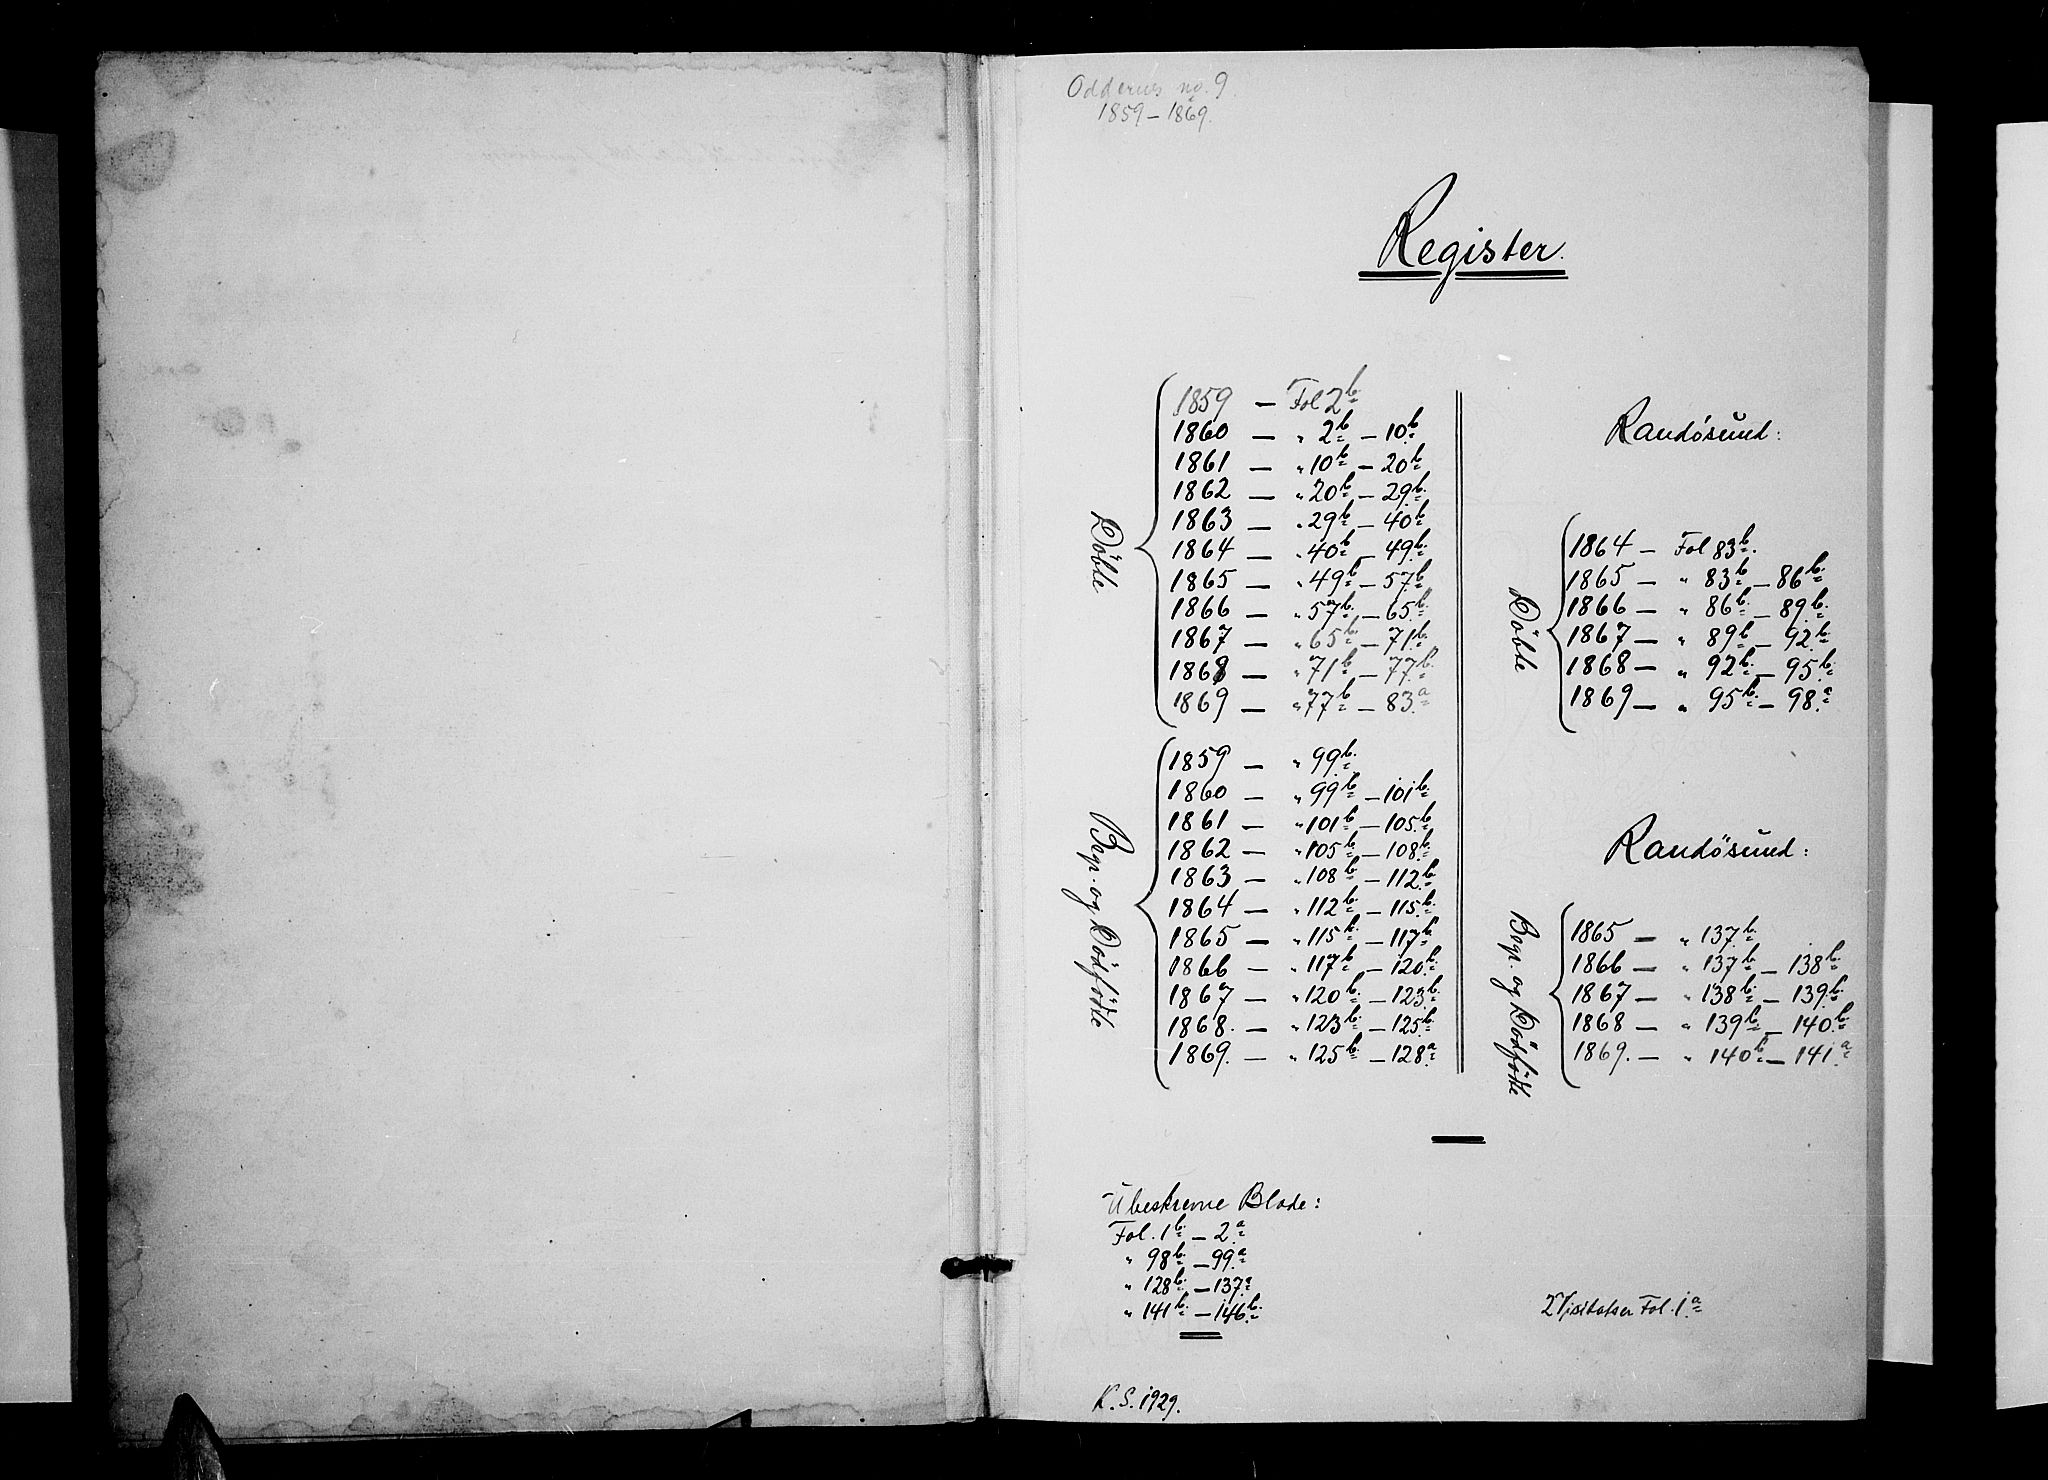 Oddernes no. 9.
1859 – 1869.
Register.
Döbte
1859 — Fol 2b.
1860 — " 2b – 10b.
1861 — " 10b – 20b
1862 — " 20b – 29b.
1863 — " 29b – 40b
1864 — " 40b – 49b.
1865 — " 49b – 57b.
1866 — " 57b. – 65b.
1867 — " 65b – 71b.
1868 — " 71b – 77b.
1869 — " 77b – 83a
Begr. og Dödfödte
1859 — " 99b.
1860 — " 99b – 101b.
1861 — " 101b – 105b
1862 — " 105b – 108b.
1863 — " 108b – 112b.
1864 — " 112b – 115b.
1865 — " 115b – 117b.
1866 — " 117b – 120b.
1867 — " 120b. – 123b.
1868. — " 123b. – 125b.
1869. — " 125b – 128a.
Randösund:
Döbte
1864 – Fol 83b.
1865 — " 83b – 86b.
1866 — " 86b. – 89b.
1867 — " 89b – 92b.
1868 — " 92b. – 95b.
1869 — " 95b. – 98a.
Randösund:
Begr. og Dödfödte
1865 — " 137b.
1866 — " 137b – 138b.
1867 — " 138b. – 139b.
1868 — " 139b – 140b.
1869. — " 140b – 141a.
Ubeskrevne Blade:
Fol. 1b. – 2a.
" 98b. – 99a.
" 128b. – 137a.
" 141b. – 146b.
2 Visitatser Fol. 1a
K. S. 1929.